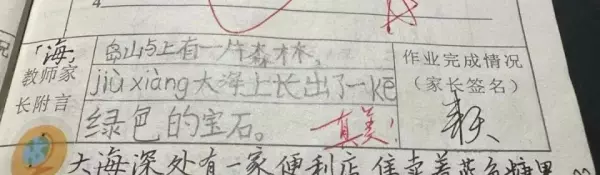 4
况
「海」
教师家
长附言
岛屿上有一片森林,
jiù xiàng大海上长出了一kē
绿色的宝石。
真美!
作业完成情况
(家长签名)
大海深处有一家便利店,售卖着蓝色糖果